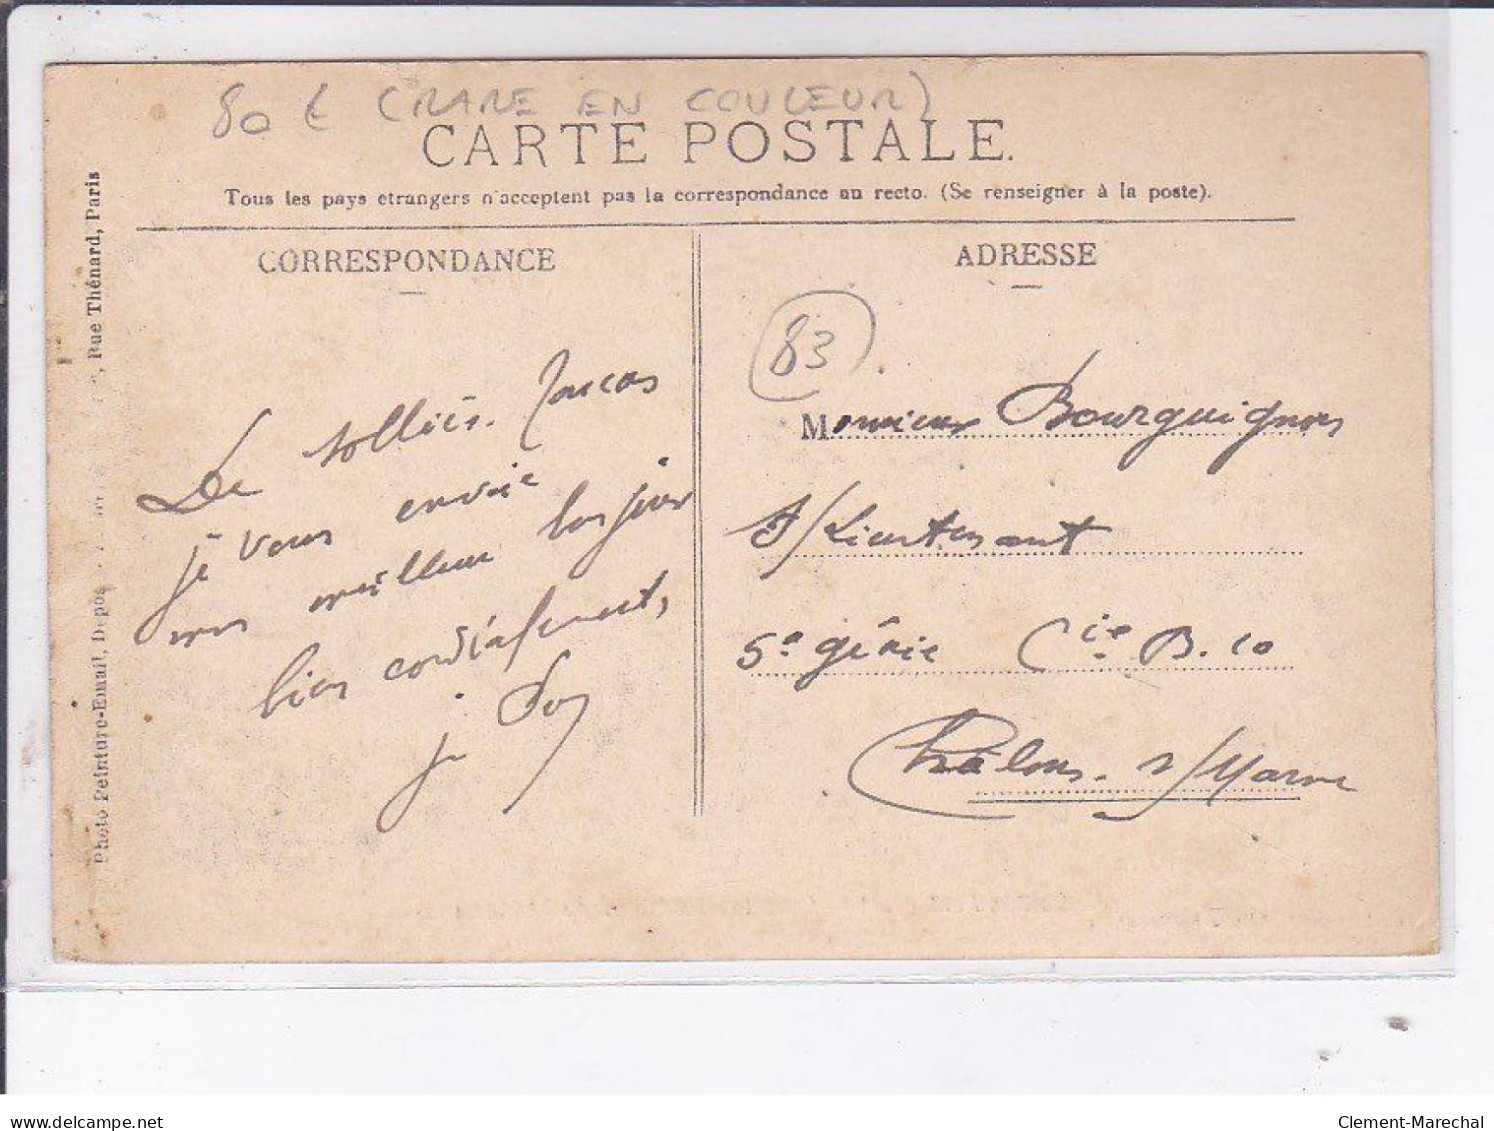 80 € (RARE EN COULEUR)
CARTE POSTALE.
Tous les pays etrangers n'acceptent pas la correspondance au recto. (Se renseigner à la poste).
CORRESPONDANCE
De Solliès.
je vous envoie
mon meilleur bonjour
bien cordialement,
ADRESSE
83
Monsieur Bourguignon
S/Lieutenant
5e génie Cie B. 10
Châlons. s/Marne
Photo Peinture-Email, Depos
Rue Thénard, Paris
delcampe.net
Clement-Marechal